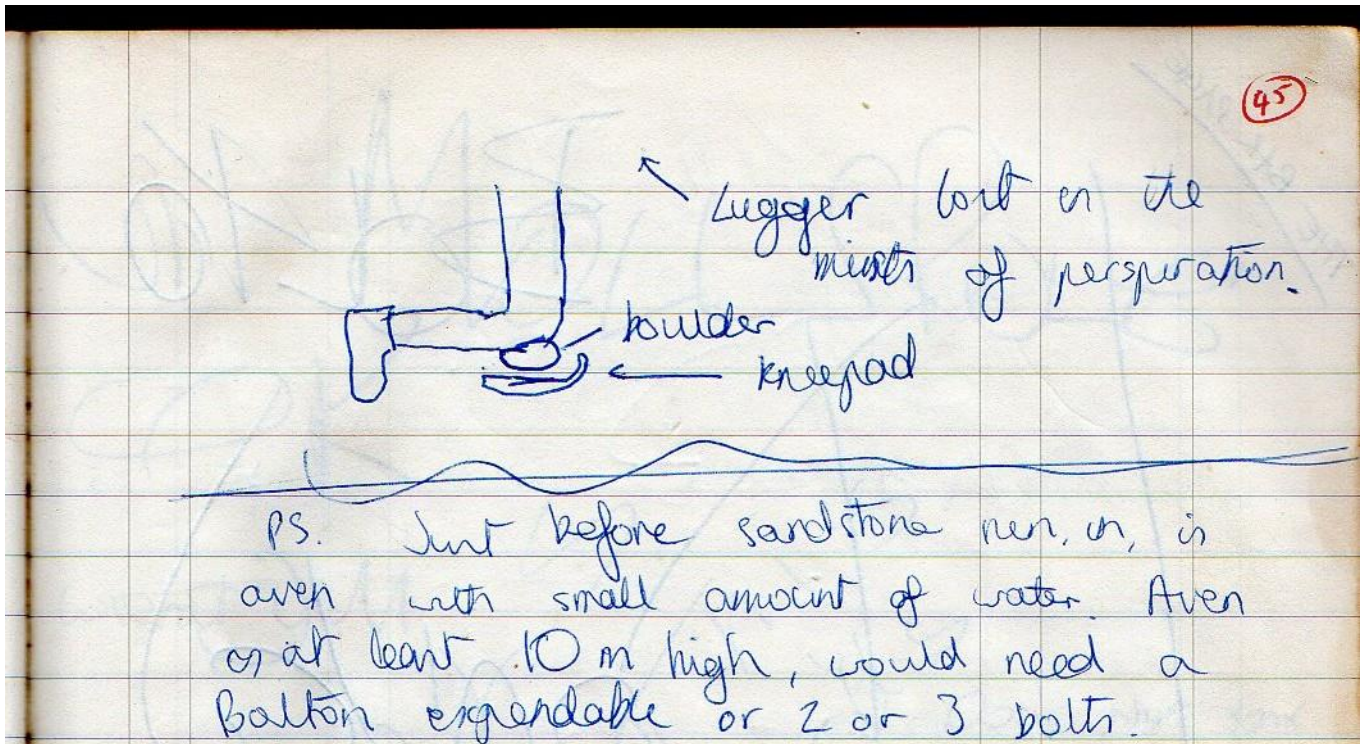 45
Lugger lost in the
mists of perspiration.
boulder
kneepad
PS. Just before sandstone run, in, is
aven with small amount of water. Aven
is at least 10 m high, would need a
Bolton expendable or 2 or 3 bolts.